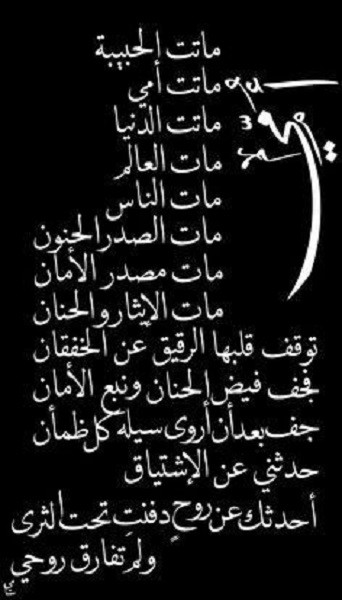 ماتت الحبيبة
ماتت أمي
ماتت الدنيا
مات العالم
مات الناس
مات الصدر الحنون
مات مصدر الأمان
مات الإيثار والحنان
توقف قلبها الرقيق عن الخفقان
فجف فيض الحنان ونبع الأمان
جف بعد أن أروى سيله كل ظمأن
حدثني عن الإشتياق
أحدثك عن روحٍ دفنت تحت الثرى
ولم تفارق روحي